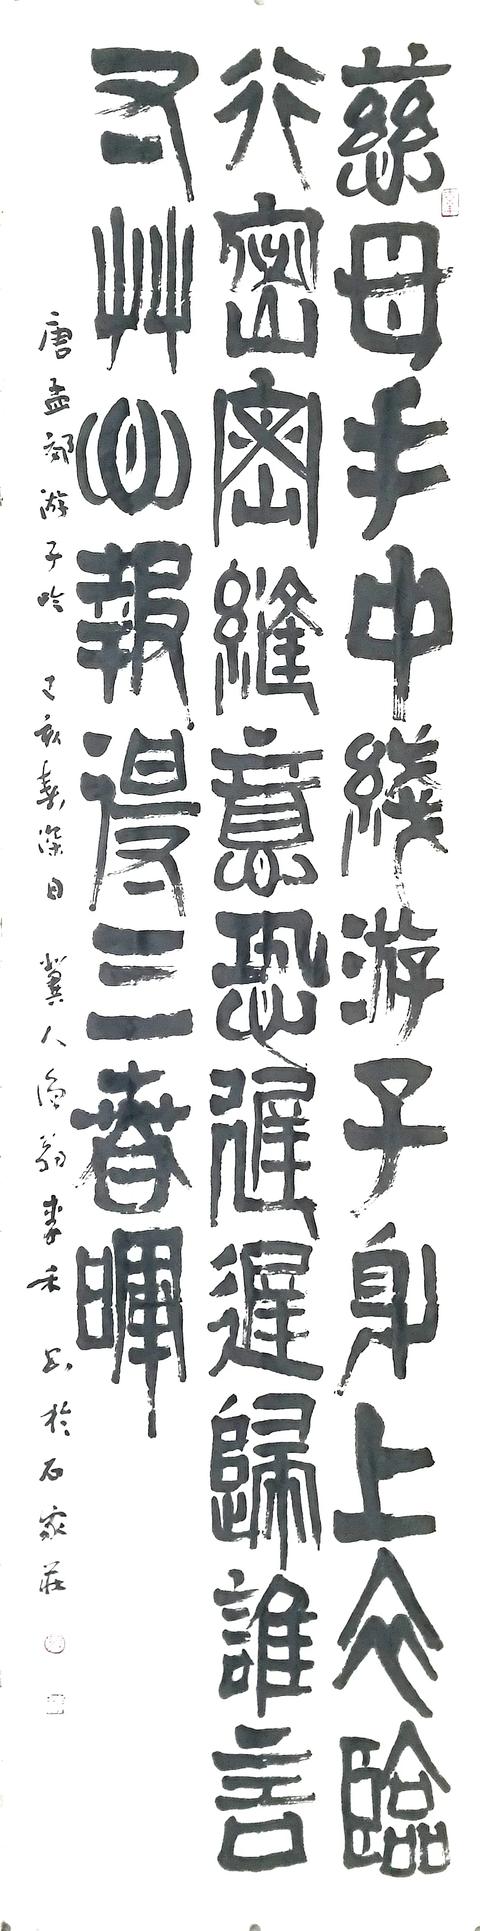 慈母手中线游子身上衣臨
行密密縫意恐遲遲歸誰言
寸艸心報得三春暉
唐孟郊游子吟 丁亥春深日 冀人漁翁春禾 书於石家莊